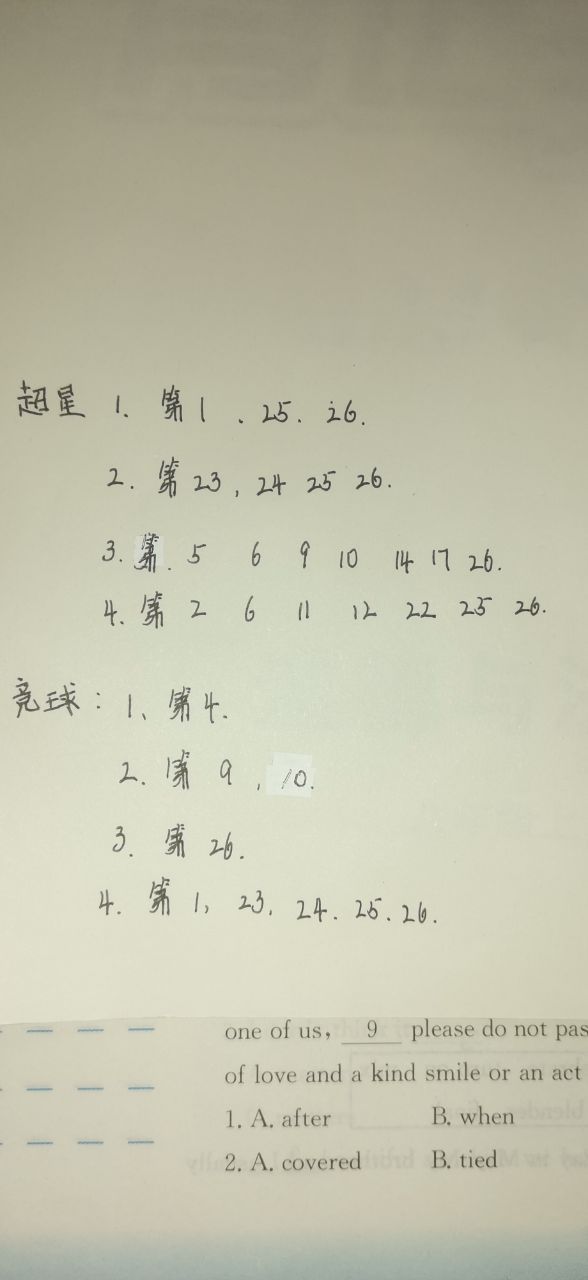 超星 1. 第1、25.26.
2. 第23,24 25 26.
3. 第.5 6 9 10 14 17 26.
4、第2 6 11 12 22 25 26.
竞球：1、第4.
2. 第9,10.
3. 第26.
4. 第1,23,24.25.26.
one of us, 9 please do not pas
of love and a kind smile or an act
1. A. after B. when
2. A. covered B. tied